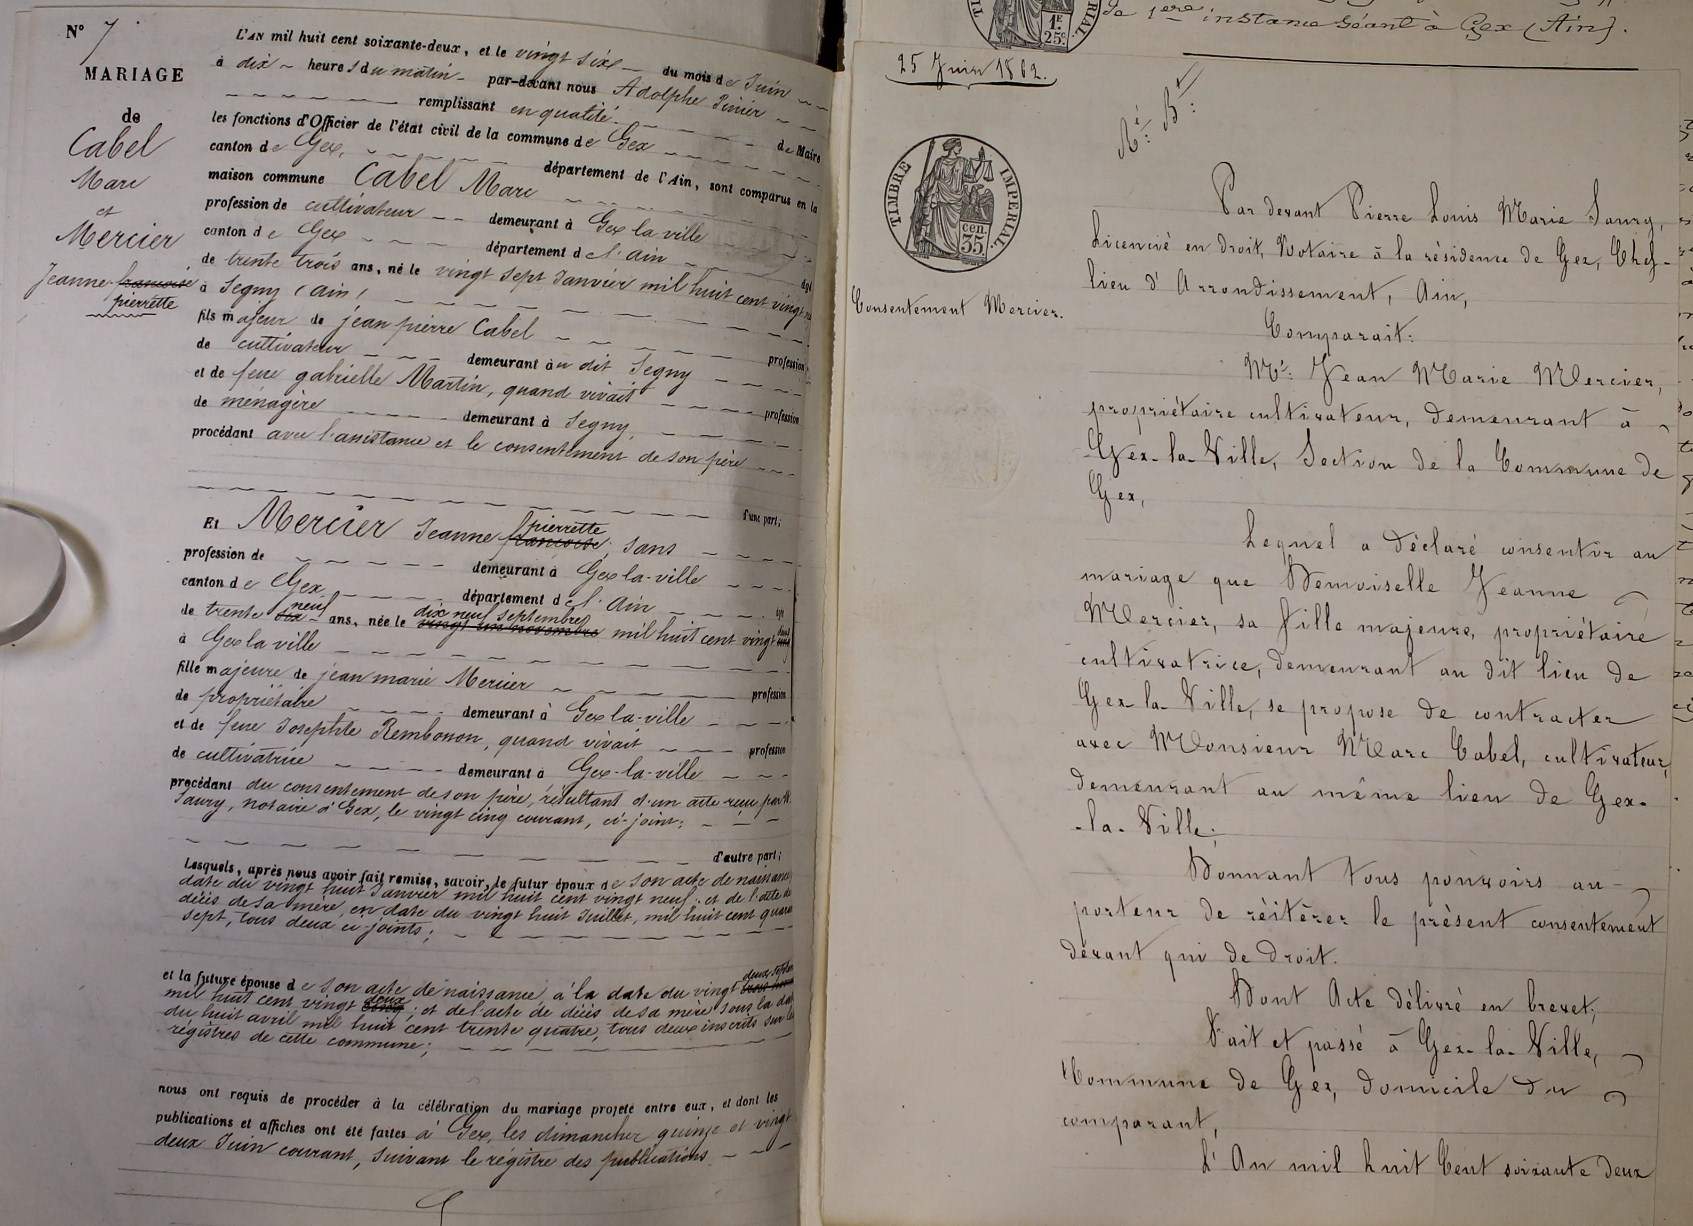 N° 7
MARIAGE
de
Cabel
Marc
et
Mercier
Jeanne françoise
pierrette
L'AN mil huit cent soixante-deux, et le vingt six du mois de Juin
à dix heures du matin par-devant nous Adolphe
remplissant en qualité de Maire
les fonctions d'Officier de l'état civil de la commune de Gex
canton de Gex, département de l'Ain, sont comparus en la
maison commune Cabel Marc
profession de cultivateur demeurant à Gex la ville
canton de Gex département de l'Ain âgé
de trente trois ans, né le vingt sept Janvier mil huit cent vingt
à Segny (Ain)
fils majeur de jean pierre Cabel profession
de cultivateur demeurant au dit Segny
et de feue gabrielle Martin, quand vivait profession
de ménagère demeurant à Segny,
procédant avec l'assistance et le consentement de son père
d'une part;
pierrette
Et Mercier Jeanne françoise, sans
profession de demeurant à Gex la-ville
canton de Gex département de l'Ain
neuf dix neuf septembre
de trente six ans, née le vingt un novembre mil huit cent vingt
à Gex la ville
fille majeure de jean marie Mercier profession
de propriétaire demeurant à Gex la-ville
et de feue Josephte Rembonon, quand vivait profession
de cultivatrice demeurant à Gex-la-ville
procédant du consentement de son père, résultant d'un acte reçu par M.
Saury, notaire à Gex, le vingt cinq courant, ci-joint;
d'autre part;
Lesquels, après nous avoir fait remise, savoir, le futur époux de son acte de naissance
date du vingt huit Janvier mil huit cent vingt neuf; et de l'acte de
décès de sa mère, en date du vingt huit Juillet, mil huit cent quara
sept, tous deux ci-joints;
deux septem
et la future épouse de son acte de naissance, à la date du vingt
mil huit cent vingt deux; et de l'acte de décès de sa mère sous la date
du huit avril mil huit cent trente quatre, tous deux inscrits sur les
régistres de cette commune;
nous ont requis de procéder à la célébration du mariage projeté entre eux, et dont les
publications et affiches ont été faites à Gex, les dimanches quinze et vingt
deux Juin courant, suivant le régistre des publications
1F. 25c.
de 1ere instance séant à Gex (Ain).
25 Juin 1862.
TIMBRE IMPERIAL.
35 cen.
Consentement Mercier.
Par devant Pierre Louis Marie Saury,
Licencié en droit, Notaire à la résidence de Gex, Chef-
lieu d'Arrondissement, Ain,
Comparait:
Mr. Jean Marie Mercier,
propriétaire cultivateur, demeurant à
Gex-la-Ville, Section de la Commune de
Gex,
Lequel a déclaré consentir au
mariage que Demoiselle Jeanne
Mercier, sa fille majeure, propriétaire
cultivatrice, demeurant au dit lieu de
Gex-la-Ville, se propose de contracter
avec Monsieur Marc Cabel, cultivateur,
demeurant au même lieu de Gex-
-la-Ville;
Donnant tous pouvoirs au
porteur de réitérer le présent consentement
devant qui de droit.
Dont Acte délivré en brevet;
Fait et passé à Gex-la-Ville,
Commune de Gex, domicile du
comparant,
L'An mil huit Cent soixante deux